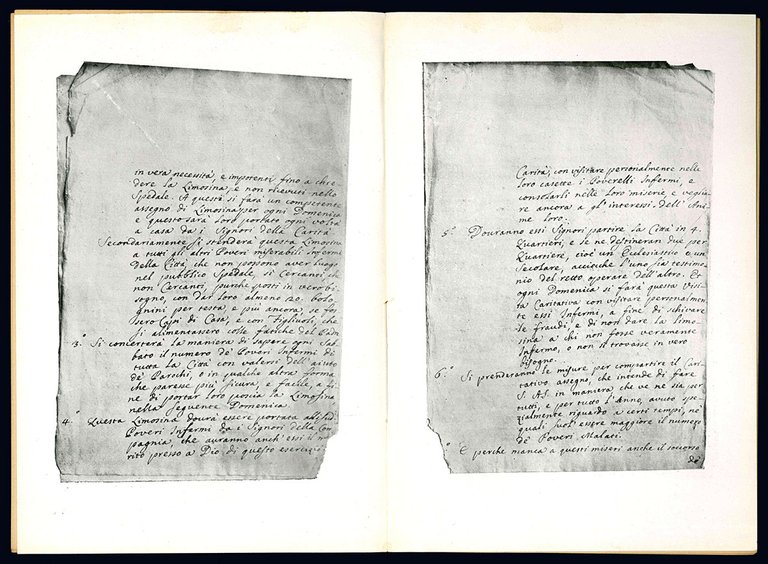 in vera necessità, e impotenti fino a chie
dere la Limosina, e non ricevuti nello
Spedale. A questi si farà un competente
assegno di Limosina per ogni Domenica
e questo sarà loro portato ogni volta
a casa da i Signori della Carità
Secondariamente si stenderà questa Limosina
a tutti gli altri Poveri miserabili Infermi
della Città, che non possono aver luogo
nel pubblico Spedale, si Cercanti che
non Cercanti, purche posti in vero bi
sogno, con dar loro almeno 20. bolo
gnini per testa, e più ancora, se fos
sero Capi di Casa, e con Figliuoli, che
si alimentassero colle fatiche del Padre
3.° Si concerterà la maniera di sapere ogni Sab
bato il numero de' Poveri Infermi di
tutta la Città con valersi dell'aiuto
de' Parochi, o in qualche altra forma
che paresse più sicura, e facile, a fi
ne di portar loro poscia la Limosina
nella seguente Domenica.
4.° Questa Limosina dovrà essere portata
Poveri Infermi da i Signori della Com
pagnia, che avranno anch'essi il me
rito presso a Dio di questo esercizio
Carità, con visitare personalmente nelle
loro casette i Poverelli Infermi, e
consolarli nelle loro miserie, e veglia
re ancora a gl'interessi dell'Ani
me loro.
5.° Dovranno essi Signori partire la Città in 4.
Quartieri, e se ne destineran due per
Quartiere, cioè un Eclesiastico e un
Secolare, acciocche l'uno sia testimo
nio del retto operare dell'altro. Et
ogni Domenica si farà questa Visi
ta Caritativa con visitare personalmen
te essi Infermi, a fine di schivare
le fraudi, e di non dare la limo
sina a chi non fosse veramente
Infermo, o non si trovasse in vero
bisogno.
6.° Si prenderanno le misure per compartire il Cari
tativo assegno, che intende di fare
S. A. S. in maniera che ve ne sia per
tutti, e per tutto l'Anno, avuto spe
zialmente riguardo a certi tempi, ne'
quali suol essere maggiore il numero
de' Poveri Malati.
° E perche manca a questi miseri anche il soccorso
de